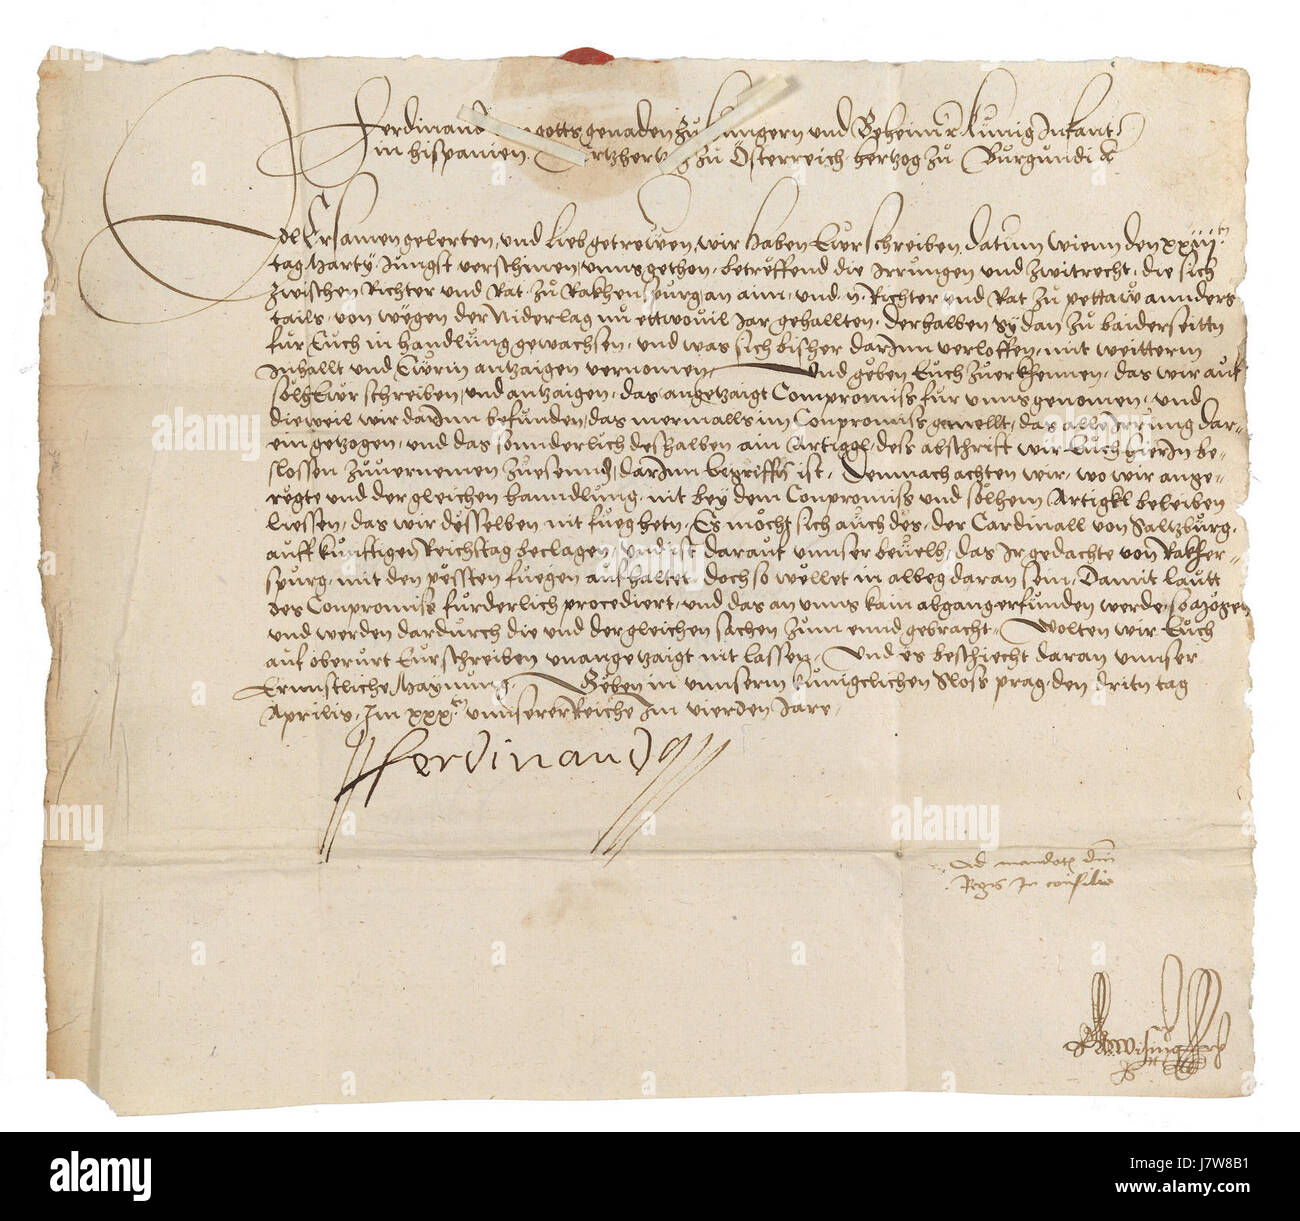 Ferdinand gotts genaden zu Hungern und Beheim ꝛc Kunig Infant
in Hispanien. Ertzhertzog zu Österreich hertzog zu Burgundi ꝛc
Edl Ersamen gelerten, und Lieb getrewen, wir haben Ewr schreiben, datum Wienn den xxviij ten
tag Marty Jungst verschinen, unns gethon, betreffend die Irrungen und Zwitrecht, die sich
zwischen Richter und Rat zu Rakhenspurg an aim, und n. Richter und Rat zu Pettaw annders
tails, von wegen der Niderlag nu ettwovil Jar gehallten, derhalben Sy dan zu baiderseittn
fur Euch in handlung gewachsen, und was sich bisher darInn verloffen, mit weitterm
Inhallt und Ewrm antzaigen vernomen, Und geben Euch zuerkhennen, das wir auf
solh Ewr schreiben und antzaigen, das angetzaigt Compromiss fur unns genomen, und
dieweil wir darInn befunden, das mermalls im Conpromiss gemellt, das alle Irrung dar-
ein getzogen, und das sonnderlich deshalben ain Artiggl, dess abschrift wir Euch hierIn be-
slossen zuvernemen zuesennd, darInn begriffen ist, Demnach achten wir, wo wir ange-
regte und dergleichen hanndlung, nit bey dem Conpromiss und solhem Artigkl beleiben
liessen, das wir desselben nit fueg hetn, Es möcht sich auch des, der Cardinall von Saltzburg,
auff kunftigen Reichstag beclagen, Und ist darauf unnser bevelh, das Ir gedachte von Rakher-
spurg, mit den pessten fuegen aufhaltet, doch so wellet in albeg daran sein, Damit lautt
des Conpromiss furderlich procediert, und das an unns kain abgang erfunden werde, so mögen
und werden dardurch die und dergleichen sachen zum ennd gebracht, Wolten wir Euch
auf oberurt Eur schreiben unangetzaigt nit lassen, Und es beschiecht daran unnser
Ernnstliche Maynung, Geben in unnserm kunigclichen Sloss Prag, den dritn tag
Aprilis, Im xxx. unnserer Reiche Im vierden Jare,
Ferdinandus
Ad mandatum dni
Regis In consilio
alamy
alamy
alamy
alamy
Image ID: J7W8B1
www.alamy.com